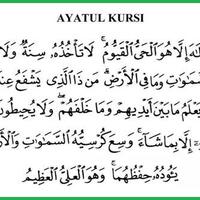 AYATUL KURSI
إِلَّا هُوَ ٱلْحَىُّ ٱلْقَيُّومُ ۚ لَا تَأْخُذُهُۥ سِنَةٌ وَلَا
سَّمَٰوَٰتِ وَمَا فِى ٱلْأَرْضِ ۗ مَن ذَا ٱلَّذِى يَشْفَعُ عِن
يَعْلَمُ مَا بَيْنَ أَيْدِيهِمْ وَمَا خَلْفَهُمْ ۖ وَلَا يُحِيطُونَ
إِلَّا بِمَا شَآءَ ۚ وَسِعَ كُرْسِيُّهُ ٱلسَّمَٰوَٰتِ وَٱلْأَرْ
يَـُٔودُهُۥ حِفْظُهُمَا ۚ وَهُوَ ٱلْعَلِىُّ ٱلْعَظِيمُ